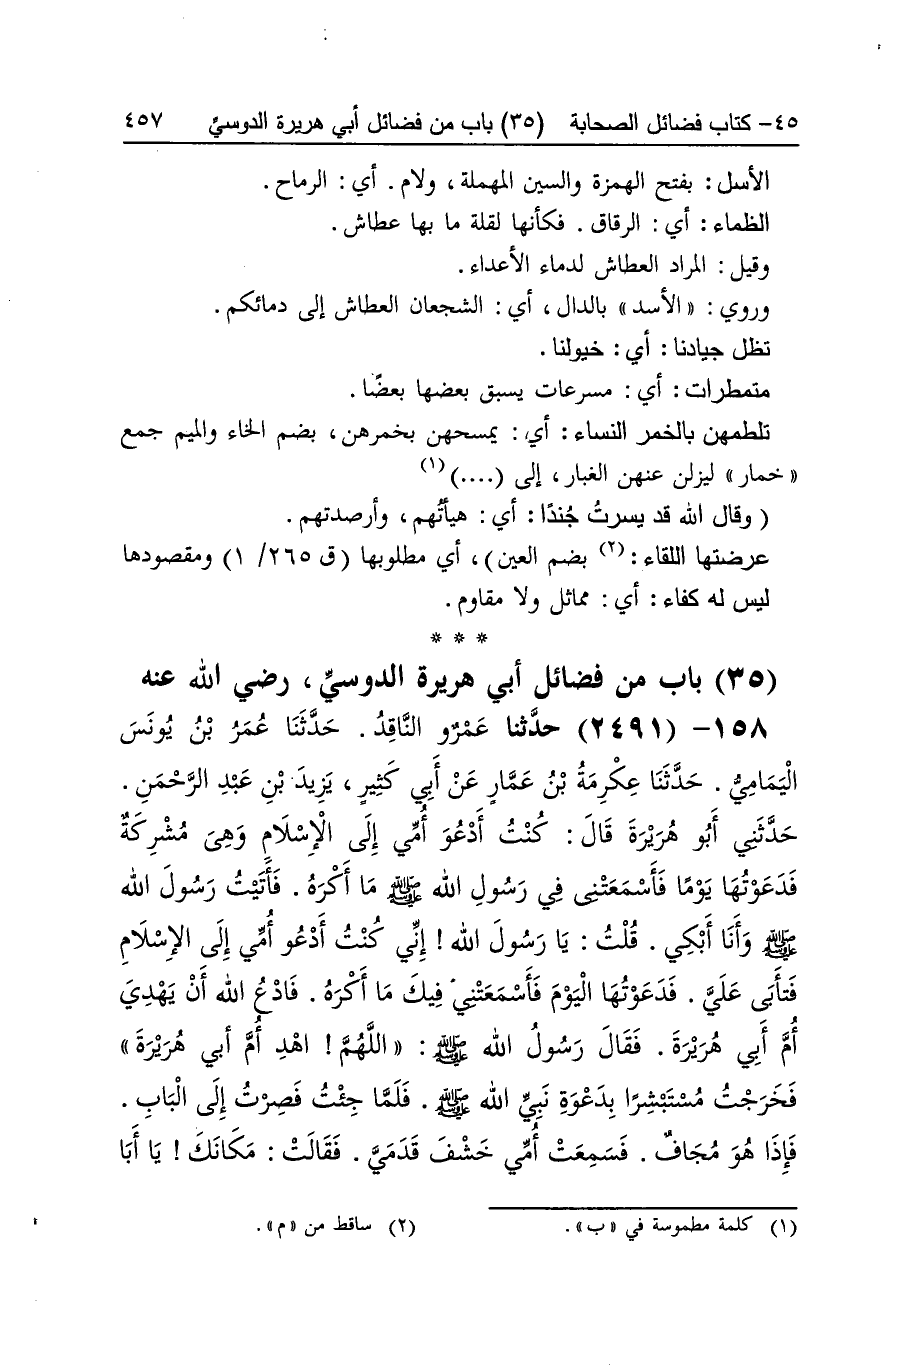 ٤٥- كتاب فضائل الصحابة (٣٥) باب من فضائل أبي هريرة الدوسيِّ ٤٥٧
الأسل : بفتح الهمزة والسين المهملة ، ولام . أي : الرماح .
الظماء : أي : الرقاق . فكأنها لقلة ما بها عطاش .
وقيل : المراد العطاش لدماء الأعداء .
وروي : « الأسد » بالدال ، أي : الشجعان العطاش إلى دمائكم .
تظل جيادنا : أي : خيولنا .
متمطرات : أي : مسرعات يسبق بعضها بعضًا .
تلطمهن بالخمر النساء : أي : يمسحهن بخمرهن ، بضم الخاء والميم جمع
« خمار » ليزلن عنهن الغبار ، إلى (....)(١)
( وقال الله قد يسرتُ جُندًا : أي : هيأتُهم ، وأرصدتهم .
عرضتها اللقاء :(٢) بضم العين) ، أي مطلوبها (ق ٢٦٥/ ١) ومقصودها
ليس له كفاء : أي : مماثل ولا مقاوم .
* * *
(٣٥) باب من فضائل أبي هريرة الدوسيِّ ، رضي الله عنه
١٥٨- (٢٤٩١) حدَّثنا عَمْرٌو النَّاقِدُ . حَدَّثَنَا عُمَرُ بْنُ يُونَسَ
الْيَمَامِيُّ . حَدَّثَنَا عِكْرِمَةُ بْنُ عَمَّارٍ عَنْ أَبِي كَثِيرٍ ، يَزِيدَ بْنِ عَبْدِ الرَّحْمَنِ .
حَدَّثَنِي أَبُو هُرَيْرَةَ قَالَ : كُنْتُ أَدْعُوَ أُمِّي إِلَى الْإِسْلَامِ وَهِىَ مُشْرِكَةٌ
فَدَعَوْتُهَا يَوْمًا فَأَسْمَعَتْنِى فِي رَسُولِ الله ﷺ مَا أَكْرَهُ . فَأَتَيْتُ رَسُولَ الله
ﷺ وَأَنَا أَبْكِي . قُلْتُ : يَا رَسُولَ الله ! إِنِّي كُنْتُ أَدْعُو أُمِّي إِلَى الإِسْلَامِ
فَتأبَى عَلَيَّ . فَدَعَوْتُهَا الْيَوْمَ فَأَسْمَعَتْنِي فِيكَ مَا أَكْرَهُ . فَادْعُ الله أَنْ يَهْدِيَ
أُمَّ أَبِي هُرَيْرَةَ . فَقَالَ رَسُولُ الله ﷺ : « اللَّهُمَّ ! اهْدِ أُمَّ أبي هُرَيْرَةَ »
فَخَرَجْتُ مُسْتَبْشِرًا بِدَعْوَةِ نَبِيِّ الله ﷺ . فَلَمَّا جِئْتُ فَصِرْتُ إِلَى الْبَابِ .
فَإِذَا هُوَ مُجَافٌ . فَسَمِعَتْ أُمِّي خَشْفَ قَدَمَيَّ . فَقَالَتْ : مَكَانَكَ ! يَا أَبَا
(١) كلمة مطموسة في «ب» . (٢) ساقط من «م» .